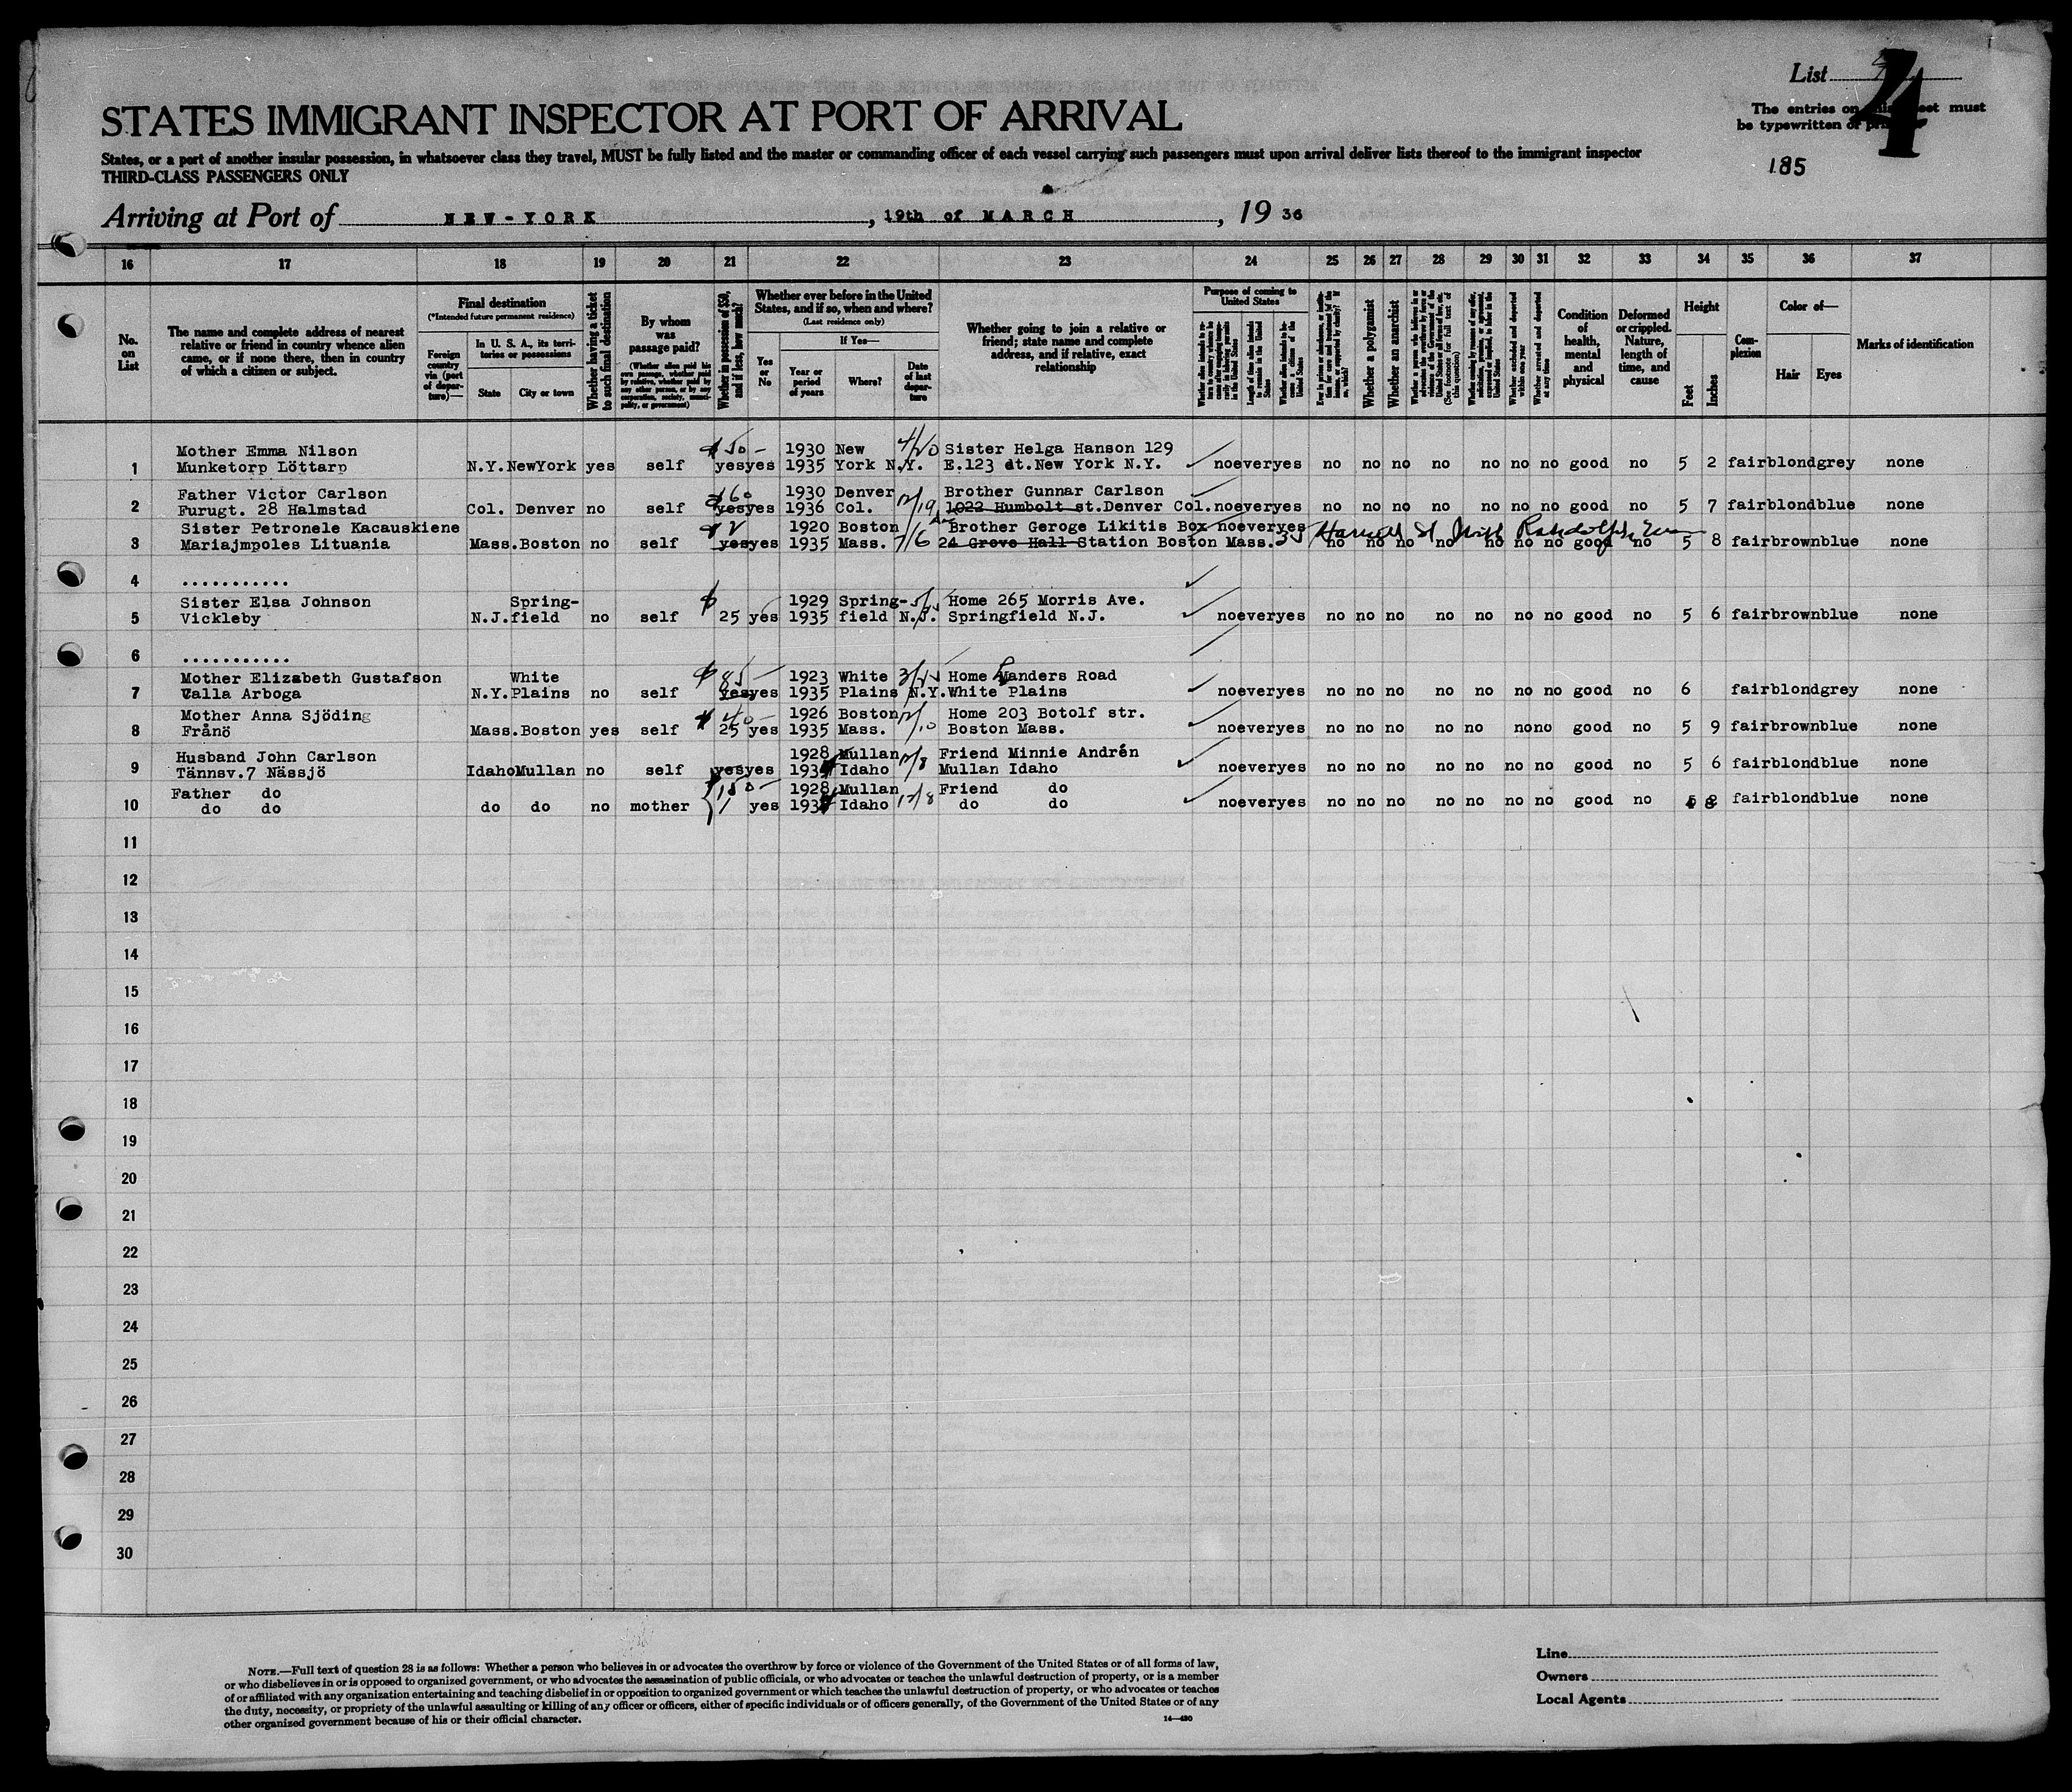 List
4
The entries on this sheet must
be typewritten or printed
185
STATES IMMIGRANT INSPECTOR AT PORT OF ARRIVAL
States, or a port of another insular possession, in whatsoever class they travel, MUST be fully listed and the master or commanding officer of each vessel carrying such passengers must upon arrival deliver lists thereof to the immigrant inspector
THIRD-CLASS PASSENGERS ONLY
Arriving at Port of NEW-YORK, 19th of MARCH, 19 36
16 17 18 19 20 21 22 23 24 25 26 27 28 29 30 31 32 33 34 35 36 37
No. on List
The name and complete address of nearest relative or friend in country whence alien came, or if none there, then in country of which a citizen or subject.
Final destination
(*Intended future permanent residence)
Foreign country via (port of departure)—
In U. S. A., its territories or possessions
State
City or town
Whether having a ticket to such final destination
By whom was passage paid?
(Whether alien paid his own passage, whether paid by relative, whether paid by any other person, or by any corporation, society, municipality, or government)
Whether in possession of $50, and if less, how much?
Whether ever before in the United States, and if so, when and where?
(Last residence only)
Yes or No
If Yes—
Year or period of years
Where?
Date of last departure
Whether going to join a relative or friend; state name and complete address, and if relative, exact relationship
Purpose of coming to United States
Length of time alien intends to remain in the United States
Whether alien intends to become a citizen of the United States
Whether a polygamist
Whether an anarchist
(See footnote for full text of this question)
Whether arrested and deported at any time
Condition of health, mental and physical
Deformed or crippled. Nature, length of time, and cause
Height
Feet
Inches
Complexion
Color of—
Hair
Eyes
Marks of identification
Mother Emma Nilson $50- 1930 New 4/20 Sister Helga Hanson 129
1 Munketorp Löttarp N.Y. NewYork yes self yes yes 1935 York N.Y. E.123 dt.New York N.Y. no ever yes no no no no no no no good no 5 2 fair blond grey none
Father Victor Carlson $60 1930 Denver Brother Gunnar Carlson
2 Furugt. 28 Halmstad Col. Denver no self yes yes 1936 Col. 12/19 1022 Humbolt st.Denver Col. no ever yes no no no no no no no good no 5 7 fair blond blue none
Sister Petronele Kacauskiene 1920 Boston Brother Geroge Likitis Box no ever yes
3 Mariajmpoles Lituania Mass. Boston no self yes yes 1935 Mass. 7/6 24 Grove Hall Station Boston Mass. 35 St Randolph no no no no no no no good no 5 8 fair brown blue none
4 ...........
Sister Elsa Johnson Spring- $ 1929 Spring- Home 265 Morris Ave.
5 Vickleby N.J. field no self 25 yes 1935 field N.J. Springfield N.J. no ever yes no no no no no no no good no 5 6 fair brown blue none
6 ...........
Mother Elizabeth Gustafson White $85- 1923 White Home Manders Road
7 Valla Arboga N.Y. Plains no self yes yes 1935 Plains N.Y. White Plains no ever yes no no no no no no no good no 6 fair blond grey none
Mother Anna Sjöding $40- 1926 Boston Home 203 Botolf str.
8 Frånö Mass. Boston yes self 25 yes 1935 Mass. 12/10 Boston Mass. no ever yes no no no no no no no good no 5 9 fair brown blue none
Husband John Carlson 1928 Mullan Friend Minnie Andrén
9 Tännsv.7 Nässjö Idaho Mullan no self yes yes 1934 Idaho 12/8 Mullan Idaho no ever yes no no no no no no no good no 5 6 fair blond blue none
Father do 150- 1928 Mullan Friend do
10 do do do do no mother yes 1934 Idaho 12/8 do do no ever yes no no no no no no no good no fair blond blue none
11
12
13
14
15
16
17
18
19
20
21
22
23
24
25
26
27
28
29
30
NOTE.—Full text of question 28 is as follows: Whether a person who believes in or advocates the overthrow by force or violence of the Government of the United States or of all forms of law,
or who disbelieves in or is opposed to organized government, or who advocates the assassination of public officials, or who advocates or teaches the unlawful destruction of property, or is a member
of or affiliated with any organization entertaining and teaching disbelief in or opposition to organized government or which teaches the unlawful destruction of property, or who advocates or teaches
the duty, necessity, or propriety of the unlawful assaulting or killing of any officer or officers, either of specific individuals or of officers generally, of the Government of the United States or of any
other organized government because of his or their official character.
14—430
Line
Owners
Local Agents